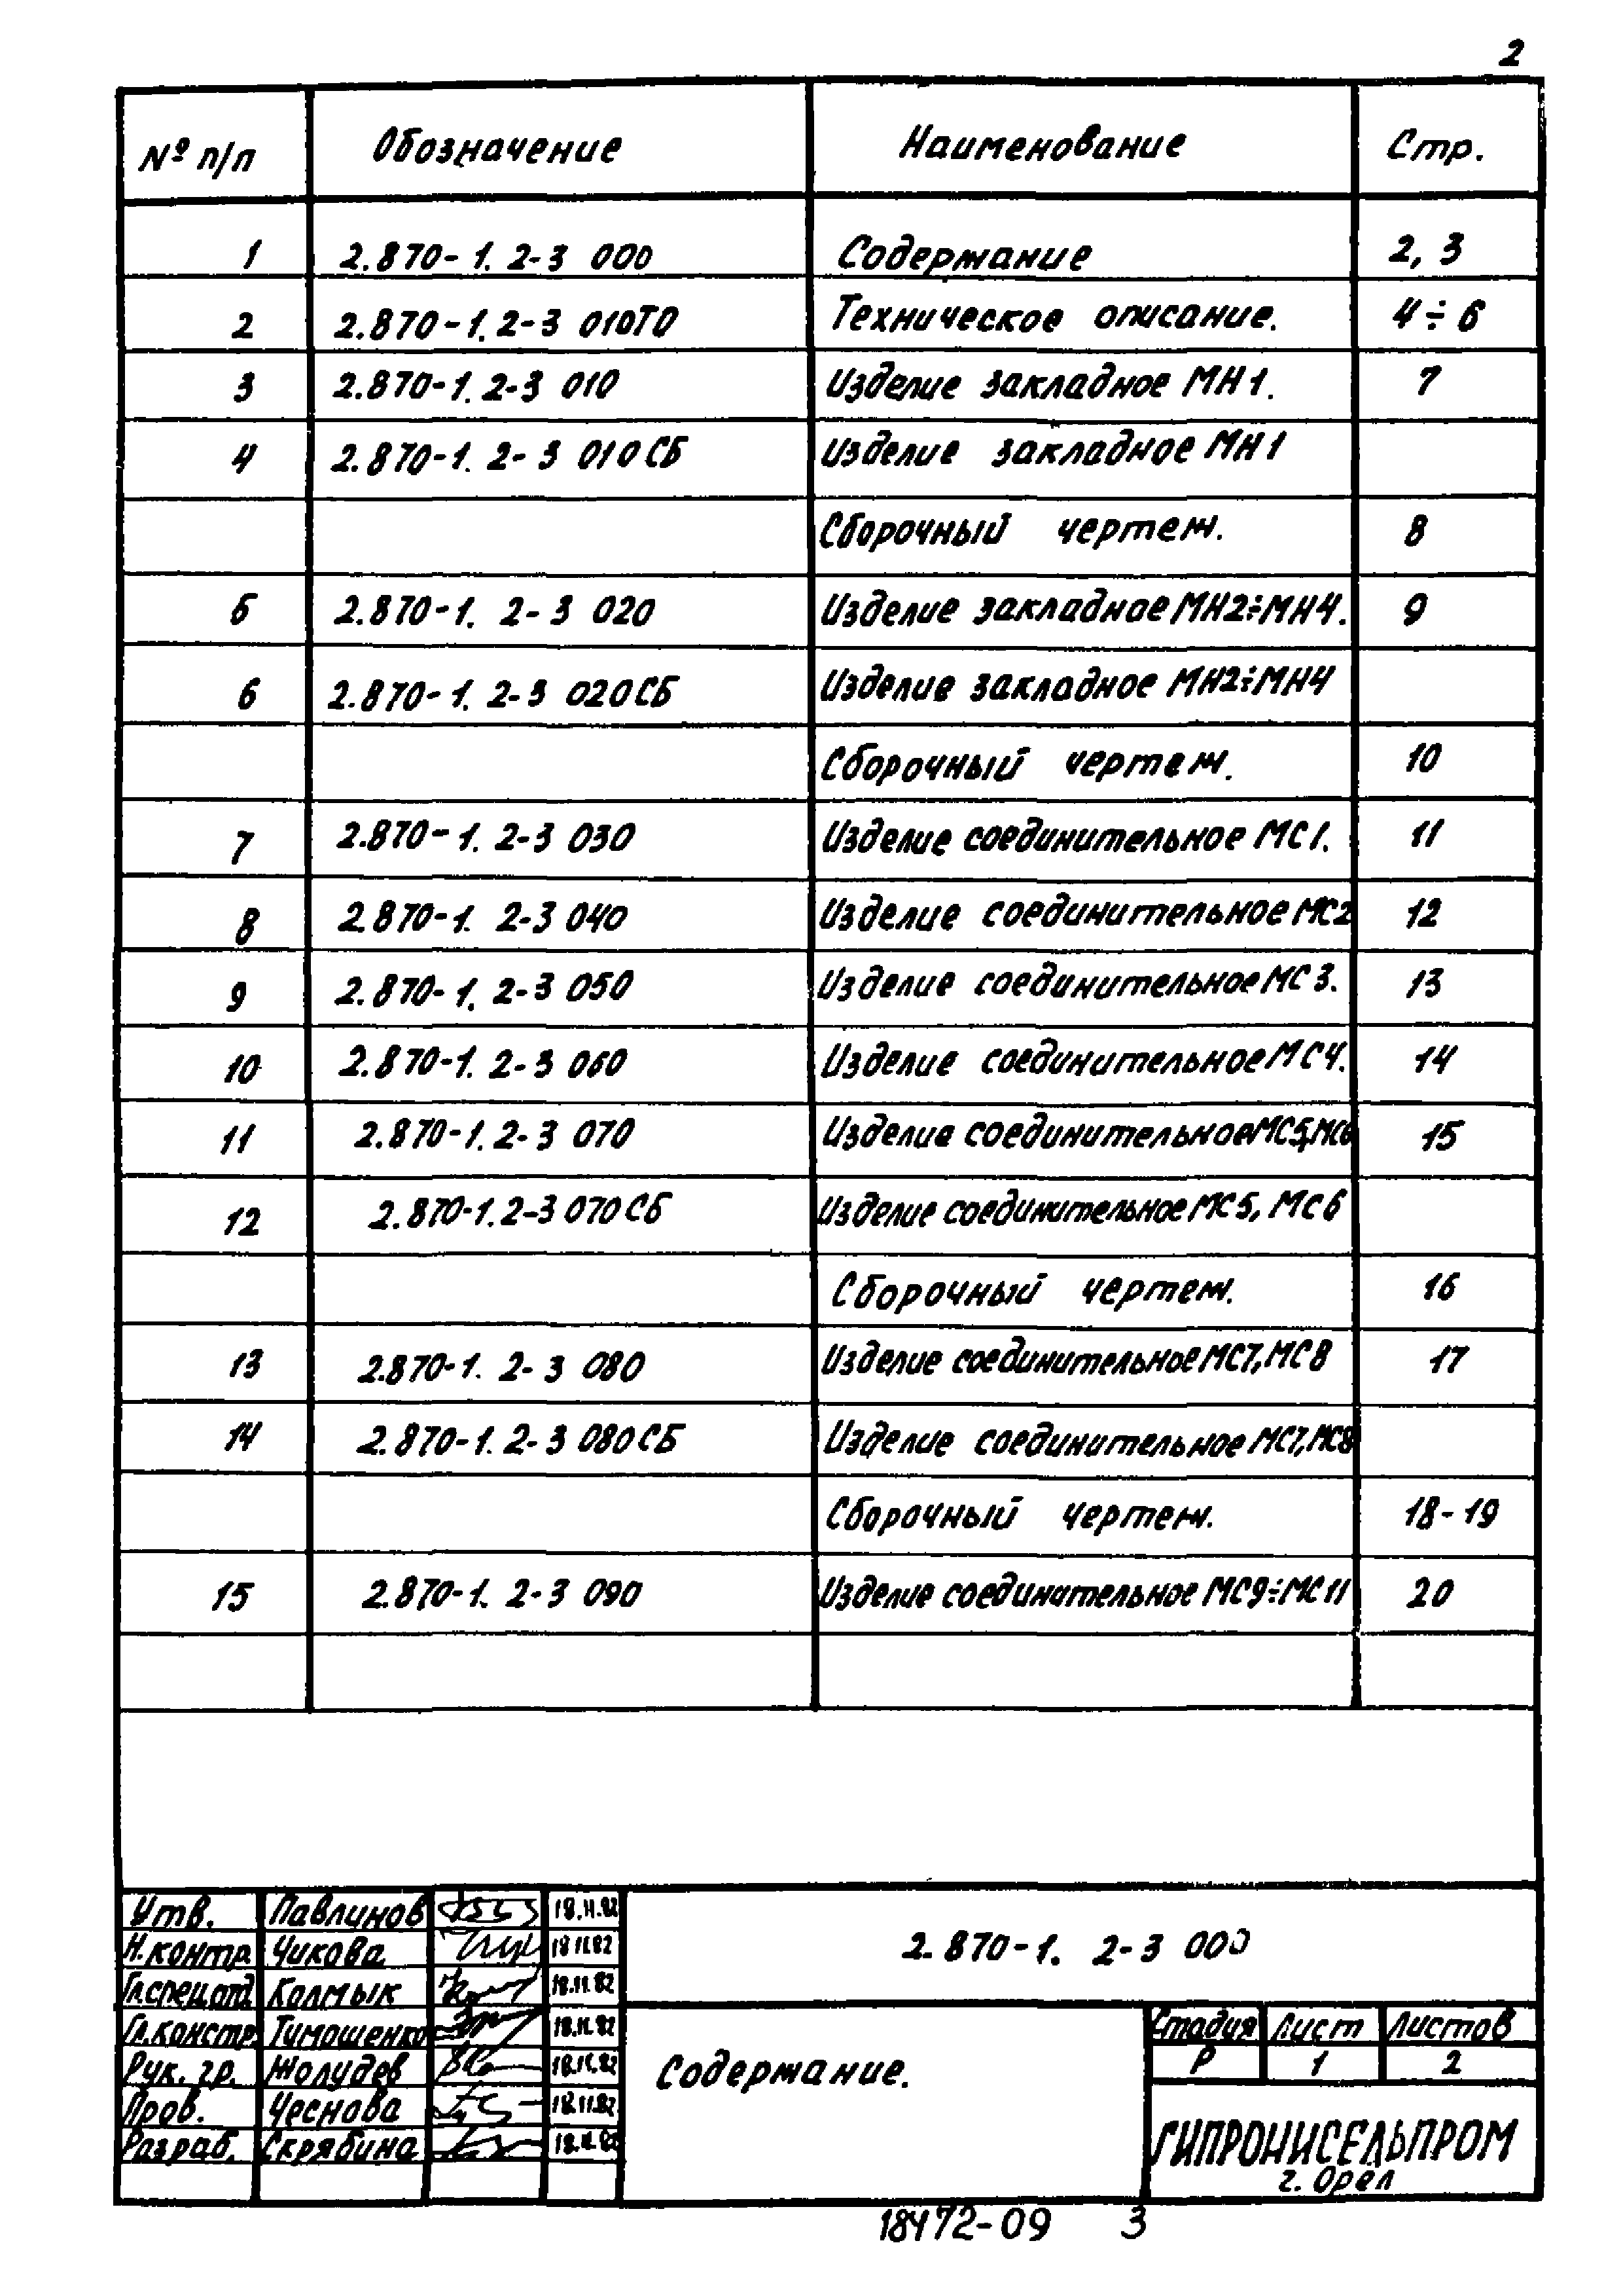 2
№ п/п Обозначение Наименование Стр.
1 2.870-1. 2-3 000 Содержание 2, 3
2 2.870-1. 2-3 010ТО Техническое описание. 4÷6
3 2.870-1. 2-3 010 Изделие закладное МН1. 7
4 2.870-1. 2-3 010СБ Изделие закладное МН1
Сборочный чертеж. 8
5 2.870-1. 2-3 020 Изделие закладное МН2÷МН4. 9
6 2.870-1. 2-3 020СБ Изделие закладное МН2÷МН4
Сборочный чертеж. 10
7 2.870-1. 2-3 030 Изделие соединительное МС1. 11
8 2.870-1. 2-3 040 Изделие соединительное МС2 12
9 2.870-1. 2-3 050 Изделие соединительное МС3. 13
10 2.870-1. 2-3 060 Изделие соединительное МС4. 14
11 2.870-1. 2-3 070 Изделие соединительное МС5,МС6 15
12 2.870-1. 2-3 070СБ Изделие соединительное МС5, МС6
Сборочный чертеж. 16
13 2.870-1. 2-3 080 Изделие соединительное МС7,МС8 17
14 2.870-1. 2-3 080СБ Изделие соединительное МС7,МС8
Сборочный чертеж. 18-19
15 2.870-1. 2-3 090 Изделие соединительное МС9÷МС11 20
Утв. Павлинов 18.11.82
Н.контр. Чикова 18.11.82
Гл.спец.отд Колмык 18.11.82
Гл.констр. Тимошенко 18.11.82
Рук. гр. Жолудев 18.11.82
Пров. Чеснова 18.11.82
Разраб. Скрябина 18.11.82
2.870-1. 2-3 000
Содержание.
Стадия Лист Листов
Р 1 2
ГИПРОНИСЕЛЬПРОМ
г. Орел
18472-09 3